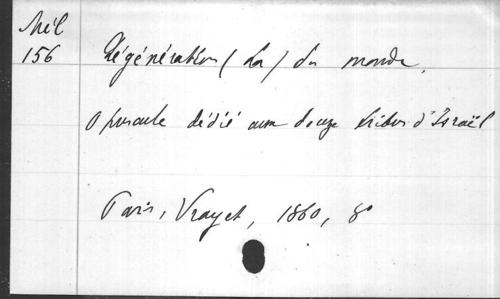 Mél
156
Régénération (La) du monde.
Opuscule dédié aux douze tribus d'Israël
Paris, Vrayet, 1860, 8°